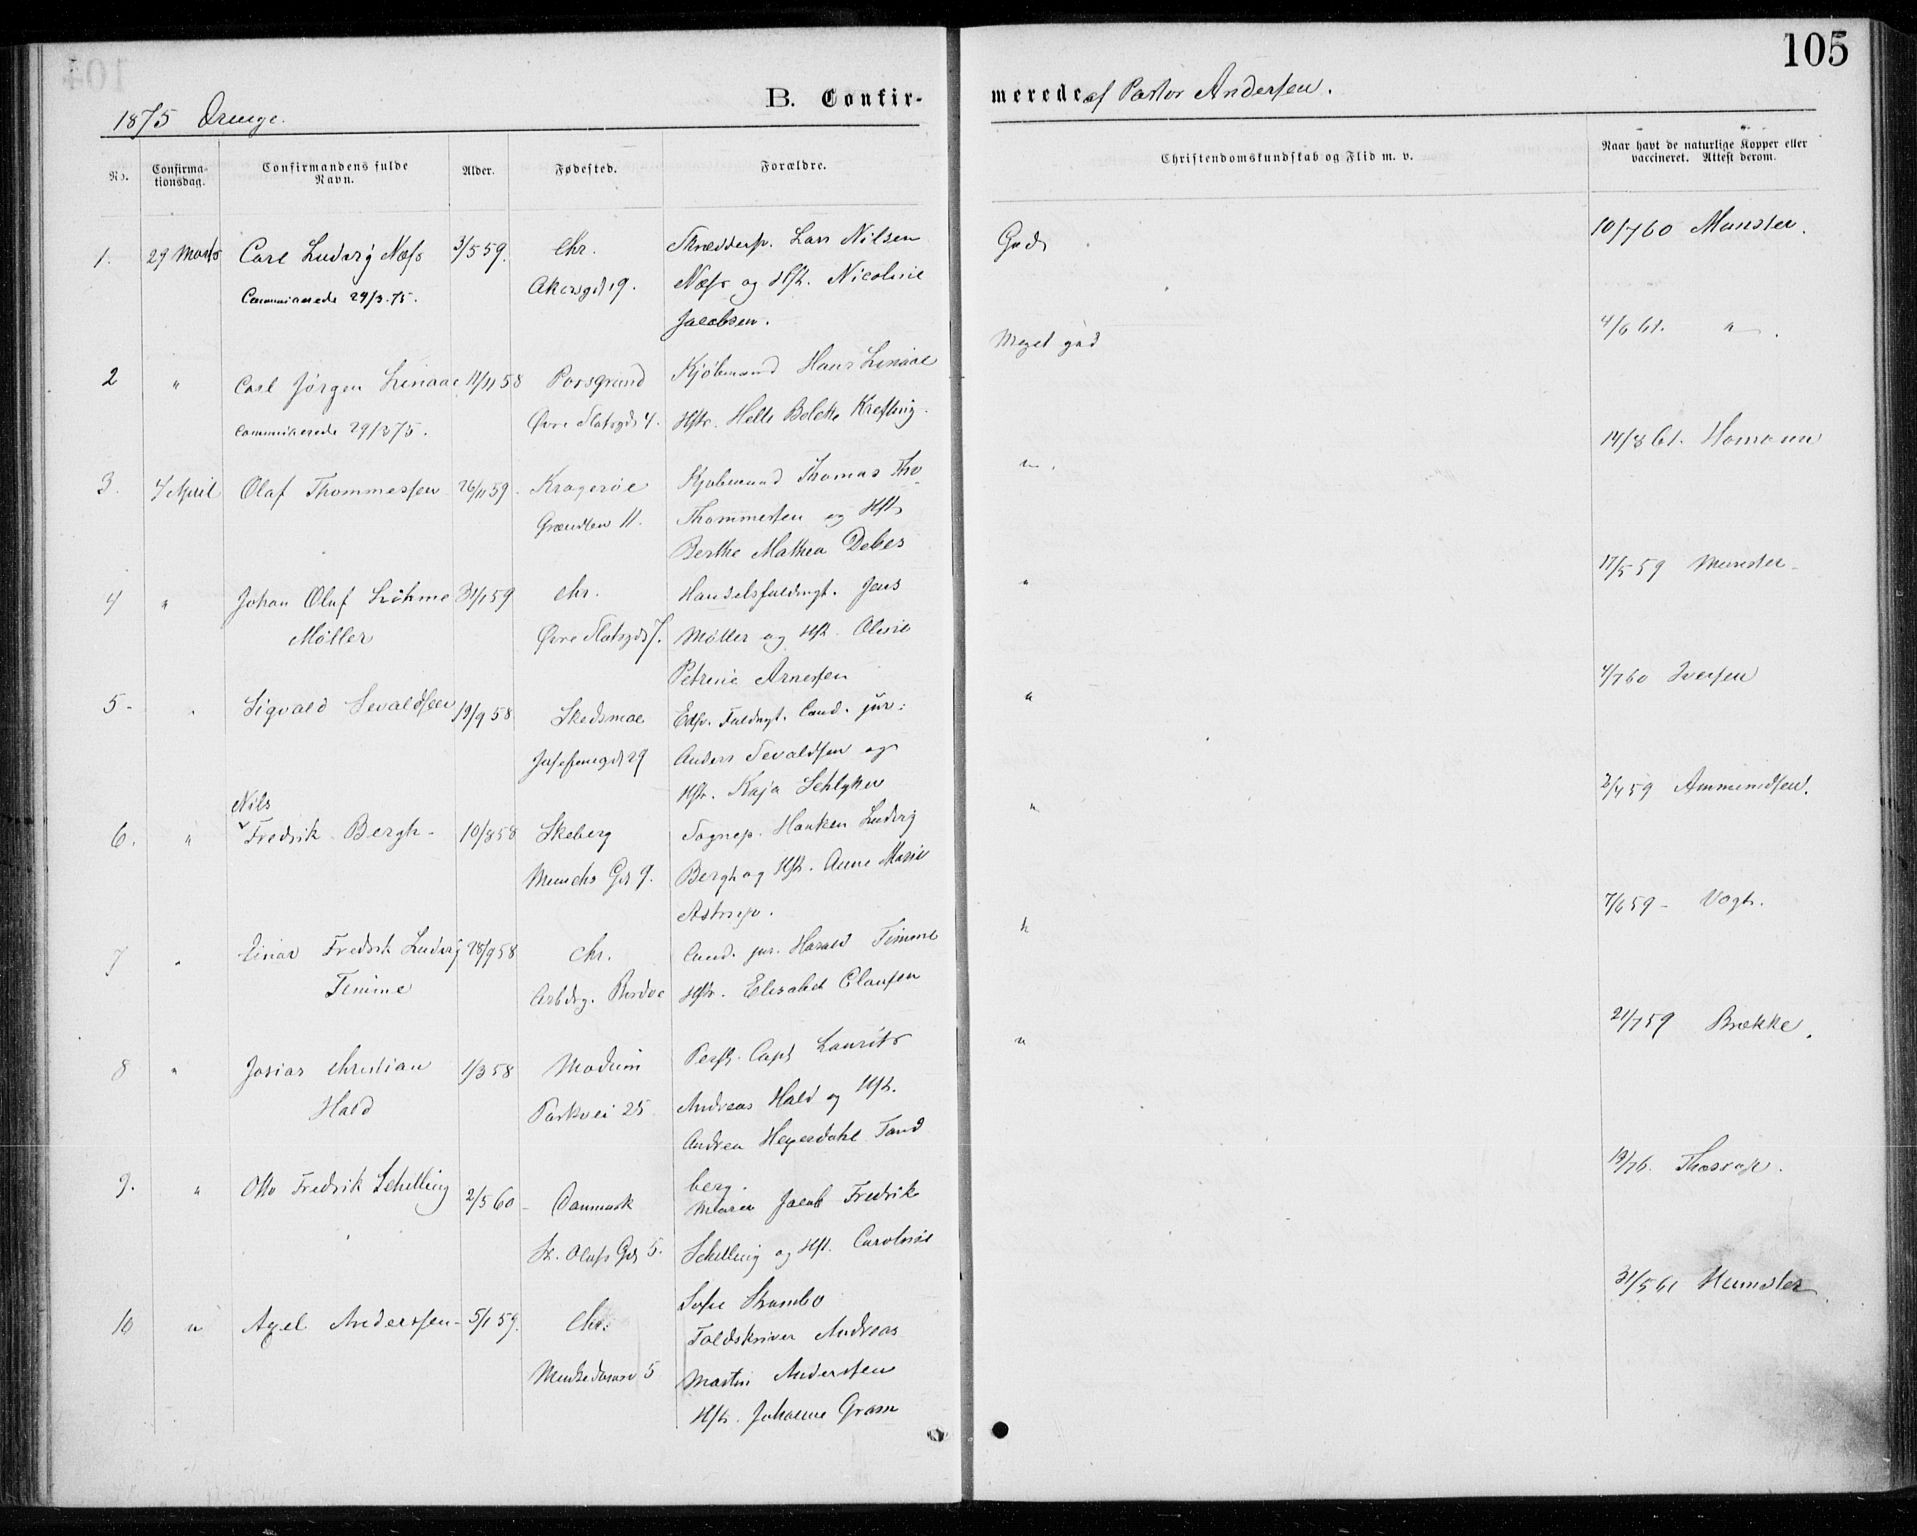 105
B. Confir- merede af Pastor Andersen.
1875 Drenge.
No.
Confirma-
tionsdag.
Confirmandens fulde
Navn.
Alder.
Fødested.
Forældre.
Christendomskundskab og Flid m. v.
Naar havt de naturlige Kopper eller
vaccineret. Attest derom.
1. 29 Marts Carl Ludvig Næss 3/5 59. Chr. Skrædderm. Lars Nilsen God 10/7 60 Munster.
Communicerede 29/3 75. Akersgd 19. Næss og Hst. Nicoline
Jacobsen.
2 " Carl Jørgen Linaae 14/11 58 Porsgrund Kjøbmand Hans Linaae Meget god 4/6 61. " .
Communicerede 29/3 75. Øvre Slotsgd 4. Hstr. Helle Bolette Krefting.
3. 4 April Olaf Thommessen 26/11 59. Kragerøe Kjøbmand Thomas Tho- 14/8 61. Homann
Grændsen 11. Thommessen og Hst
Berthe Mathea Debes
4 " Johan Oluf Løhme 31/1 59 Chr. Handelsfuldmgt. Jens " 17/5 59 Munster
Møller Øvre Slotsgd 7. Møller og Hst. Olivie
Petrine Arnessen
5 " Sigvald Sevaldsen 19/9 58 Skedsmoe Fuldmgt. Cand. jur: " 4/7 60 Iversen
Josefinegd 29 Anders Sevaldsen og
Hstr. Kaja Schlytter
Nils
6. " Fredrik Bergh 10/8 58 Skeberg Sognep. Haaken Ludvig " 2/4 59 Ammundsen.
Munchs Gd 9. Bergh og Hst. Anne Marie
Astrup.
7 " Einar Fredrik Ludvig 28/9 58 Chr. Cand. jur. Harald Timme " 7/6 59 - Vogt.
Timme Hstr. Elisabet Clausen
8 " Josias Christian 1/3 58 Modum Capt Laurits " 21/7 59 Brække.
Hald Parkvei 25 Andreas Hald og Hst.
Andrea Heyerdahl Tand
berg.
9. " Otto Fredrik Schilling 2/5 60 - Danmark Jacob Fredrik
St. Olafs Gd 5. Schilling og Hst. Caroline
Sofie Strambo
10 " Axel Anderssen 5/1 59. Chr. Toldskriver Andreas 31/5 61 Munster
Munkedamsv 5 Martin Anderssen
Hstr. Johanne Gram